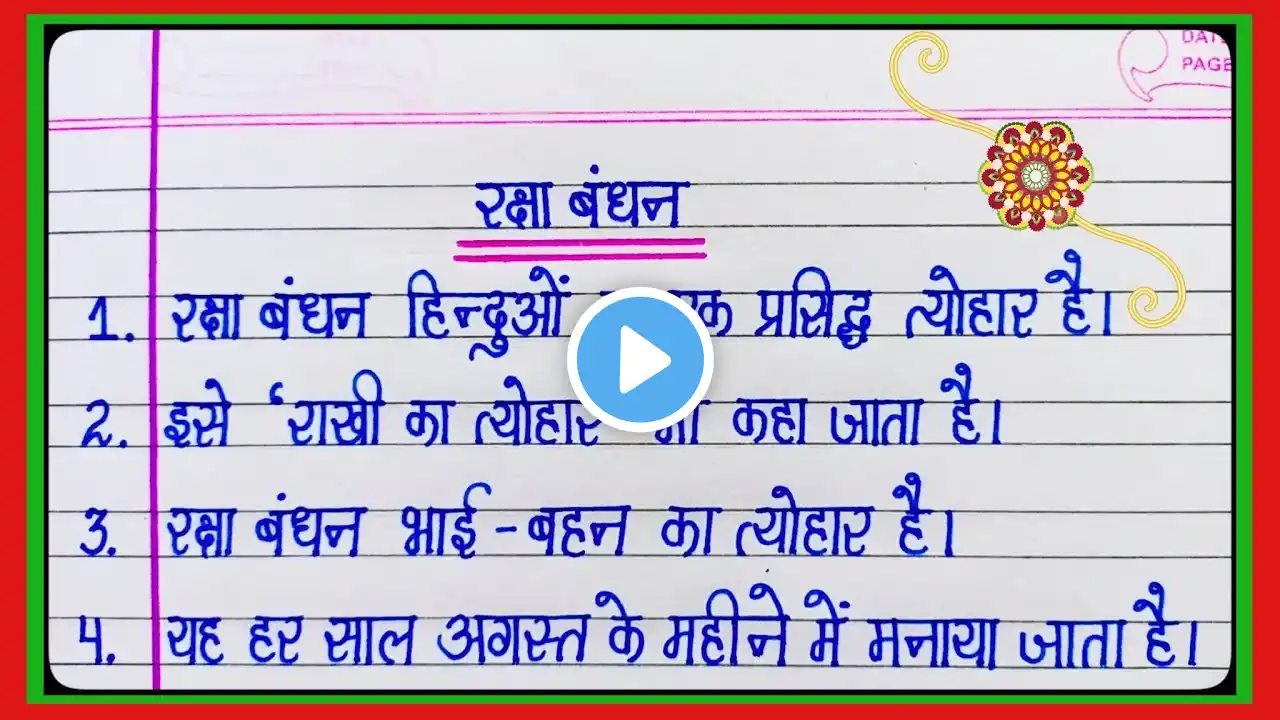 DATE
PAGE
रक्षा बंधन
1. रक्षा बंधन हिन्दुओं एक प्रसिद्ध त्योहार है।
2. इसे ‘राखी का त्योहार’ भी कहा जाता है।
3. रक्षा बंधन भाई-बहन का त्योहार है।
4. यह हर साल अगस्त के महीने में मनाया जाता है।